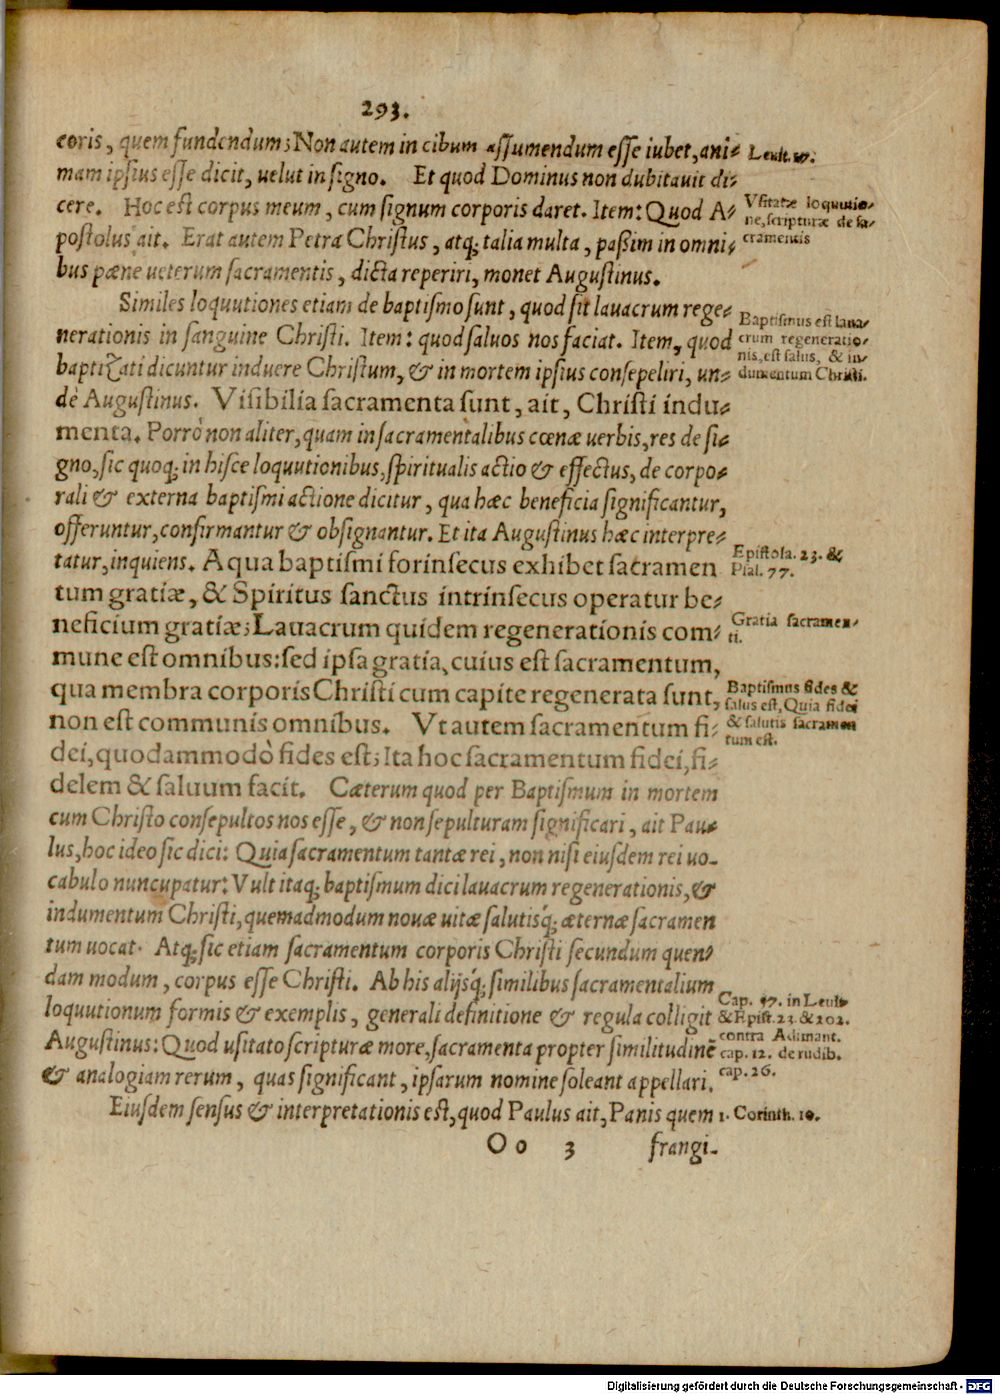 293.
coris, quem fundendum; Non autem in cibum assumendum esse iubet, ani-
mam ipsius esse dicit, uelut in signo. Et quod Dominus non dubitauit di-
cere. Hoc est corpus meum, cum signum corporis daret. Item: Quod A-
postolus ait. Erat autem Petra Christus, atq; talia multa, paßim in omni-
bus pæne ueterum sacramentis, dicta reperiri, monet Augustinus.
Leuit. 17.
Vsitatæ loquutio-
ne, scripturæ de sa-
cramentis
Similes loquutiones etiam de baptismo sunt, quod sit lauacrum rege-
nerationis in sanguine Christi. Item: quod saluos nos faciat. Item, quod
baptizati dicuntur induere Christum, & in mortem ipsius consepeliri, un-
dè Augustinus. Visibilia sacramenta sunt, ait, Christi indu-
menta. Porrò non aliter, quam in sacramentalibus cœnæ uerbis, res de si-
gno, sic quoq; in hisce loquutionibus, spiritualis actio & effectus, de corpo-
rali & externa baptismi actione dicitur, qua hæc beneficia significantur,
offeruntur, confirmantur & obsignantur. Et ita Augustinus hæc interpre-
tatur, inquiens. Aqua baptismi forinsecus exhibet sacramen
tum gratiæ, & Spiritus sanctus intrinsecus operatur be-
neficium gratiæ; Lauacrum quidem regenerationis com-
mune est omnibus: sed ipsa gratia, cuius est sacramentum,
qua membra corporis Christi cum capite regenerata sunt,
non est communis omnibus. Vt autem sacramentum fi-
dei, quodammodò fides est; Ita hoc sacramentum fidei, fi-
delem & saluum facit. Cæterum quod per Baptismum in mortem
cum Christo consepultos nos esse, & non sepulturam significari, ait Pau-
lus, hoc ideo sic dici: Quia sacramentum tantæ rei, non nisi eiusdem rei uo-
cabulo nuncupatur: Vult itaq; baptismum dici lauacrum regenerationis, &
indumentum Christi, quemadmodum nouæ uitæ salutisq́; æternæ sacramen
tum uocat. Atq; sic etiam sacramentum corporis Christi secundum quen-
dam modum, corpus esse Christi. Ab his alijsq́; similibus sacramentalium
loquutionum formis & exemplis, generali definitione & regula colligit
Augustinus: Quod usitato scripturæ more, sacramenta propter similitudinẽ
& analogiam rerum, quas significant, ipsarum nomine soleant appellari.
Baptismus est laua-
crum regeneratio-
nis, est salus, & in-
dumentum Christi.
Epistola. 23. &
Psal. 77.
Gratia sacramen-
ti.
Baptismus fides &
salus est, Quia fidei
& salutis sacramen
tum est.
Cap. 57. in Leuit.
& Epist. 23. & 102.
contra Adimant.
cap. 12. de rudib.
cap. 26.
Eiusdem sensus & interpretationis est, quod Paulus ait, Panis quem
1. Corinth. 10.
Oo 3 frangi-
Digitalisierung gefördert durch die Deutsche Forschungsgemeinschaft - DFG